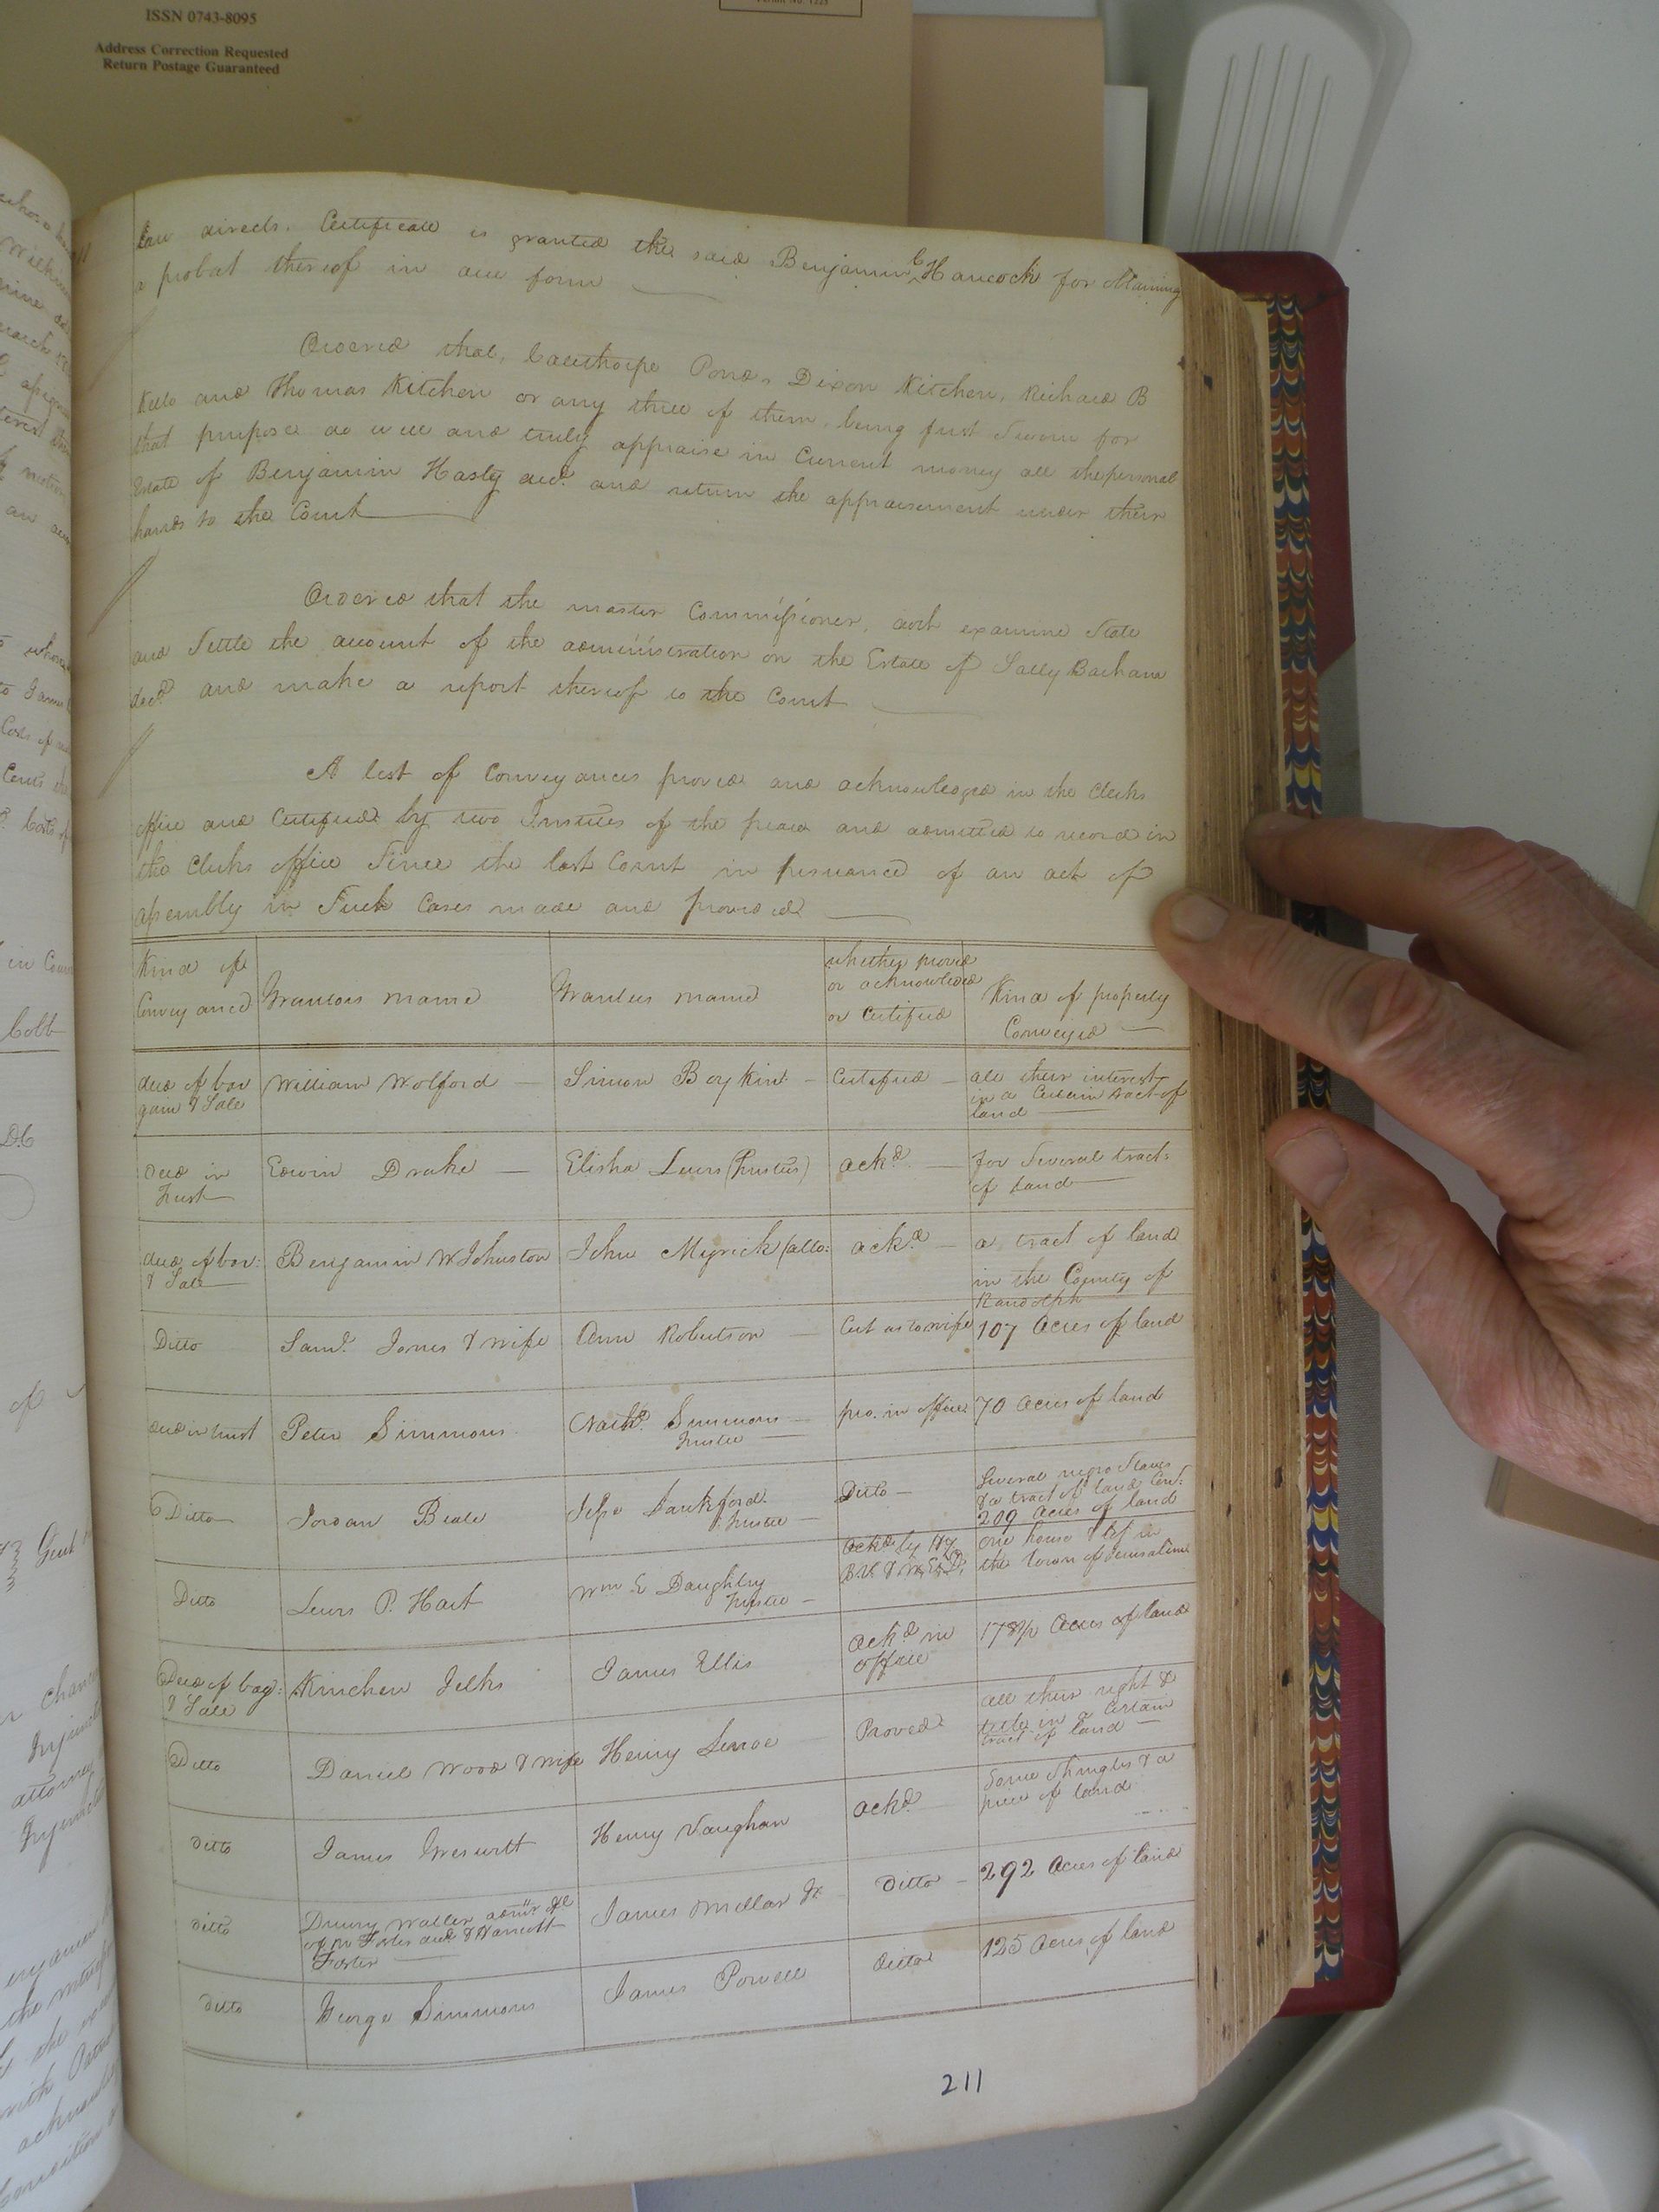 ISSN 0743-8095
Address Correction Requested
Return Postage Guaranteed
Law directs. Certificate is granted the said Benjamin C Hancock for obtaining
a probat thereof in due form
Ordered that, Calthorpe Pond, Dixon Kitchen, Richard B
Kello and Thomas Kitchen or any three of them, being first Sworn for
that purpose do well and truly appraise in Current money all the personal
Estate of Benjamin Hasty decd. and return the appraisement under their
hands to the Court
Ordered that the master Commissioner, audt examine State
and Settle the account of the administration on the Estate of Sally Barham
decd and make a report thereof to the Court
A list of Conveyances proved and acknowledged in the Clerks
office and Certified by two Justices of the peace and admitted to record in
the Clerks office Since the last Court in pursuance of an act of
assembly in Such Cases made and provided
Kind of Conveyance | Grantors name | Grantees name | whether proved or acknowledged or Certified | Kind of property Conveyed
deed of bargain & Sale | William Wolford | Simon Boykin | Certified | all their interest in a Certain tract of land
deed in trust | Edwin Drake | Elisha Lewis (trustee) | ackd. | for Several tracts of land
deed of bar: & Sale | Benjamin W Johnston | John Myrick (atto: | ackd. | a tract of land in the County of Randolph
Ditto | Saml. Jones & wife | Ann Robertson | Cert as to wife | 107 Acres of land
deed in trust | Peter Simmons | Nathl. Simmons trustee | pro. in office | 70 acres of land
Ditto | Jordan Beale | Jesse Lankford trustee | Ditto | Several negro Slaves & a tract of land Cont: 209 Acres of land
Ditto | Lewis P. Hart | Wm E Daughtry trustee | ackd by | one house & lot in the town of Jerusalem
Deed of barg: & Sale | Kinchen Jelks | James Ellis | ackd in office | 178½ Acres of land
Ditto | Daniel Wood & wife | Henry | Proved | all their right & title in a Certain tract of land
ditto | James | Henry Vaughan | ackd. | Some Shingles & a piece of land
ditto | Drury Waller admr &c of Foster decd & Foster | James Millar Jr. | ditto | 292 Acres of land
ditto | George Simmons | James Powell | ditto | 125 Acres of land
211